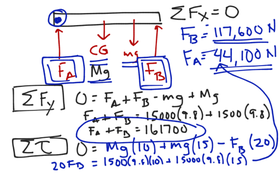 ΣFx = 0
FB = 117,600 N
FA = 44,100 N
CG mg
FA Mg FB
ΣFy 0 = FA + FB - mg + Mg
FA + FB = 15000(9.8) + 1500(9.8)
FA + FB = 161700
Στ 0 = Mg(10) + mg(15) - FB(20)
20FB = 1500(9.8)(10) + 15000(9.8)(15)